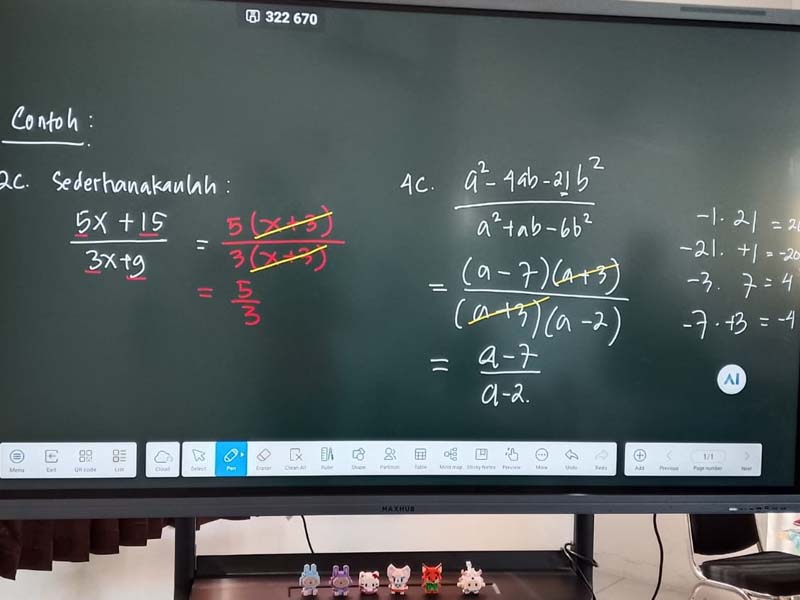 322 670
Contoh :
2C. Sederhanakanlah :
5x + 15 / 3x+9 = 5(x+3) / 3(x+3)
= 5/3
4C. a² - 4ab - 21b² / a² + ab - 6b²
= (a-7)(a+3) / (a+3)(a-2)
= a-7 / a-2.
-1 . 21 = 20
-21 . +1 = -20
-3 . 7 = 4
-7 . +3 = -4
AI
Menu Exit QR code List Cloud Select Pen Eraser Clean All Ruler Shape Partition Table Mind map Sticky Notes Preview More Undo Redo Add Previous 1/1 Page number Next
MAXHUB